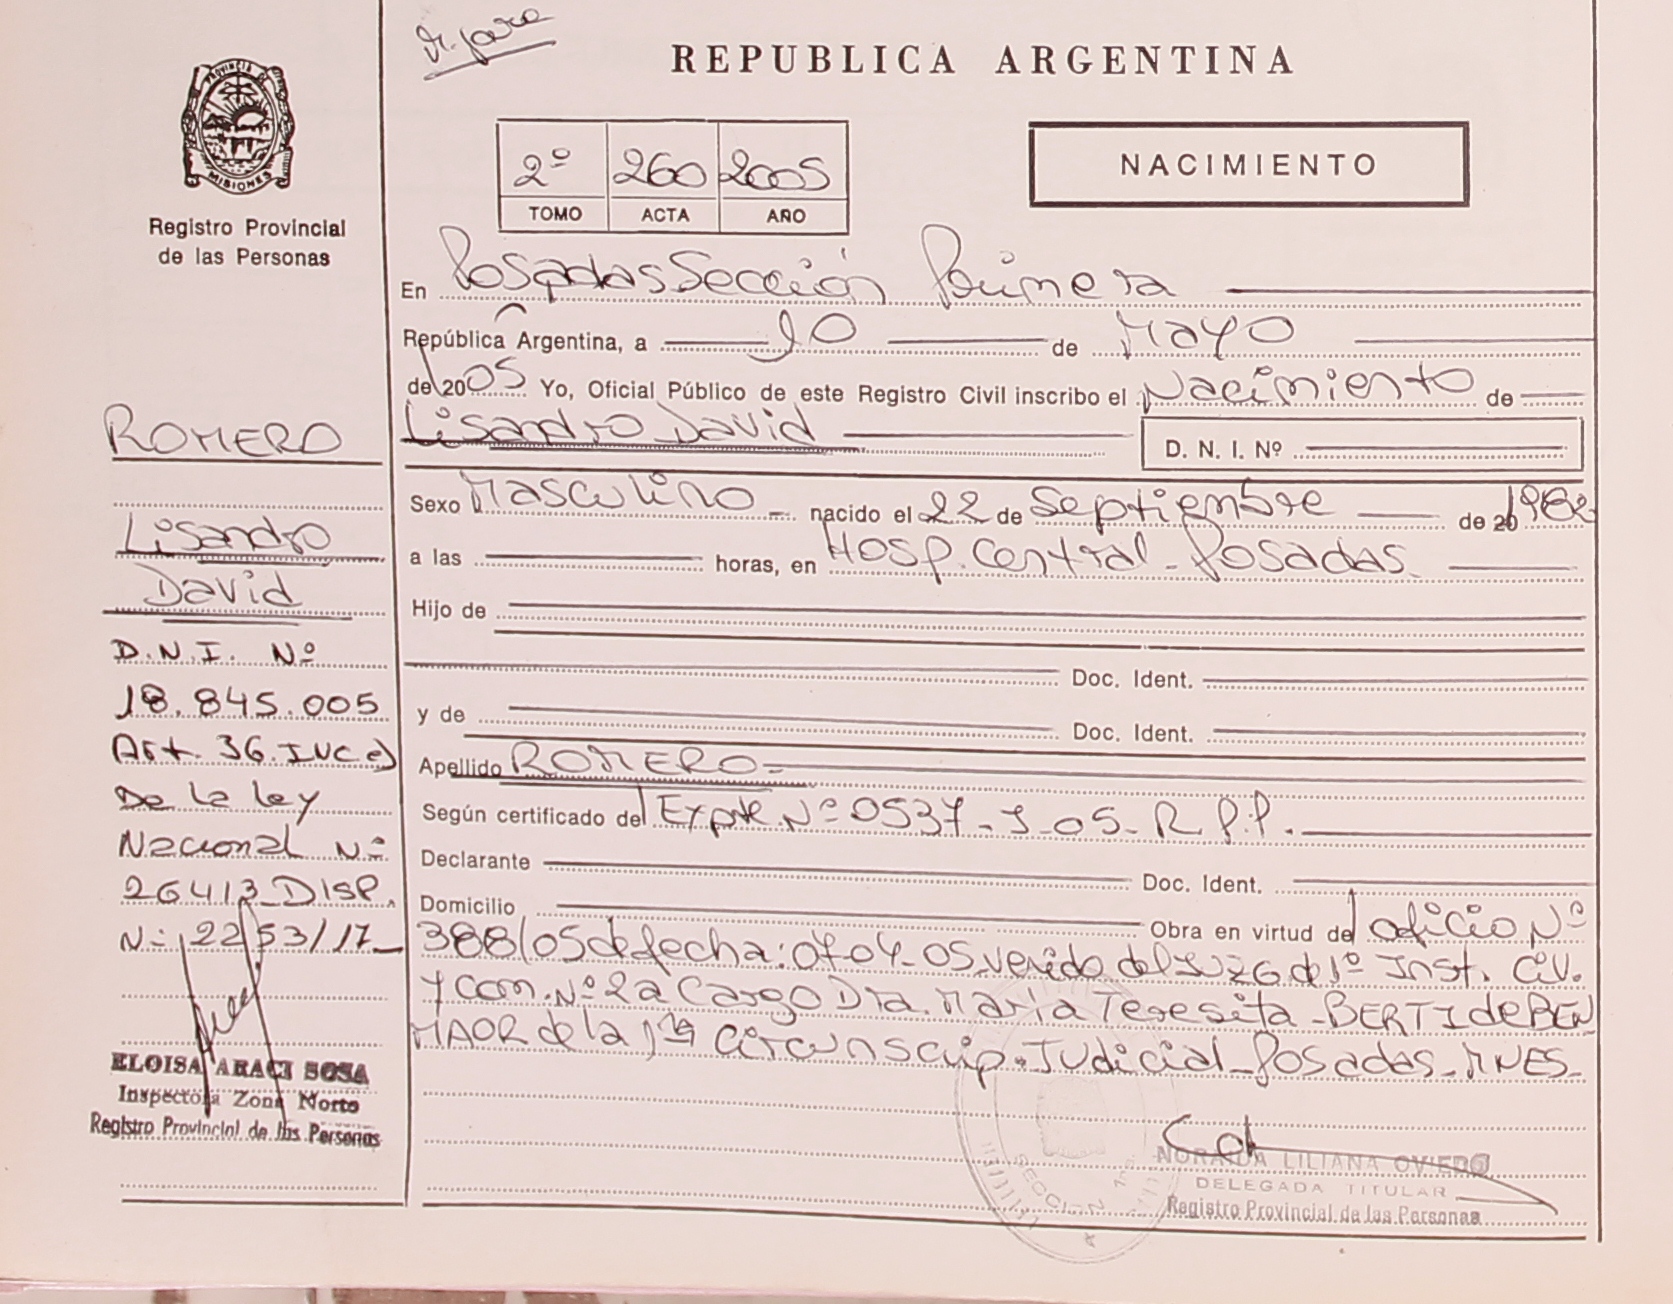 REPUBLICA ARGENTINA
PROVINCIA DE
MISIONES
Registro Provincial
de las Personas
2º 260 2005
TOMO ACTA AÑO
NACIMIENTO
En Posadas Sección Primera
República Argentina, a 10 de Mayo
de 2005 Yo, Oficial Público de este Registro Civil inscribo el Nacimiento de
Lisandro David
D. N. I. Nº
Sexo Masculino nacido el 22 de Septiembre de 20
a las horas, en Hosp. Central - Posadas.
Hijo de
Doc. Ident.
y de Doc. Ident.
Apellido ROMERO-
Según certificado del Expte Nº 0537-J-05-R.P.P.
Declarante Doc. Ident.
Domicilio
Obra en virtud del oficio Nº
388/05 de fecha: 07-04-05 venido del Juzg de 1º Inst. Civ.
y Com. Nº 2 a Cargo Dra. Maria Teresita - BERTI de BEN
MAOR de la 1ra Circunscrip. Judicial - Posadas - MNES-
NORAIDA LILIANA OVIEDO
DELEGADA TITULAR
Registro Provincial de las Personas
SECCION 1ra
ROMERO
Lisandro
David
D.N.I. Nº
18.845.005
Art. 36. INC c)
De la Ley
Nacional Nº
26413 DISP.
Nº 2253/17
ELOISA ARACI SOSA
Inspectora Zona Norte
Registro Provincial de las Personas